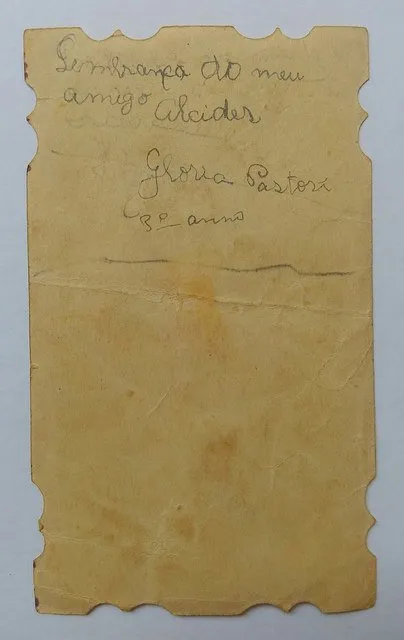 Lembrança do meu
amigo Alcides
Gloria Pastori
3º anno